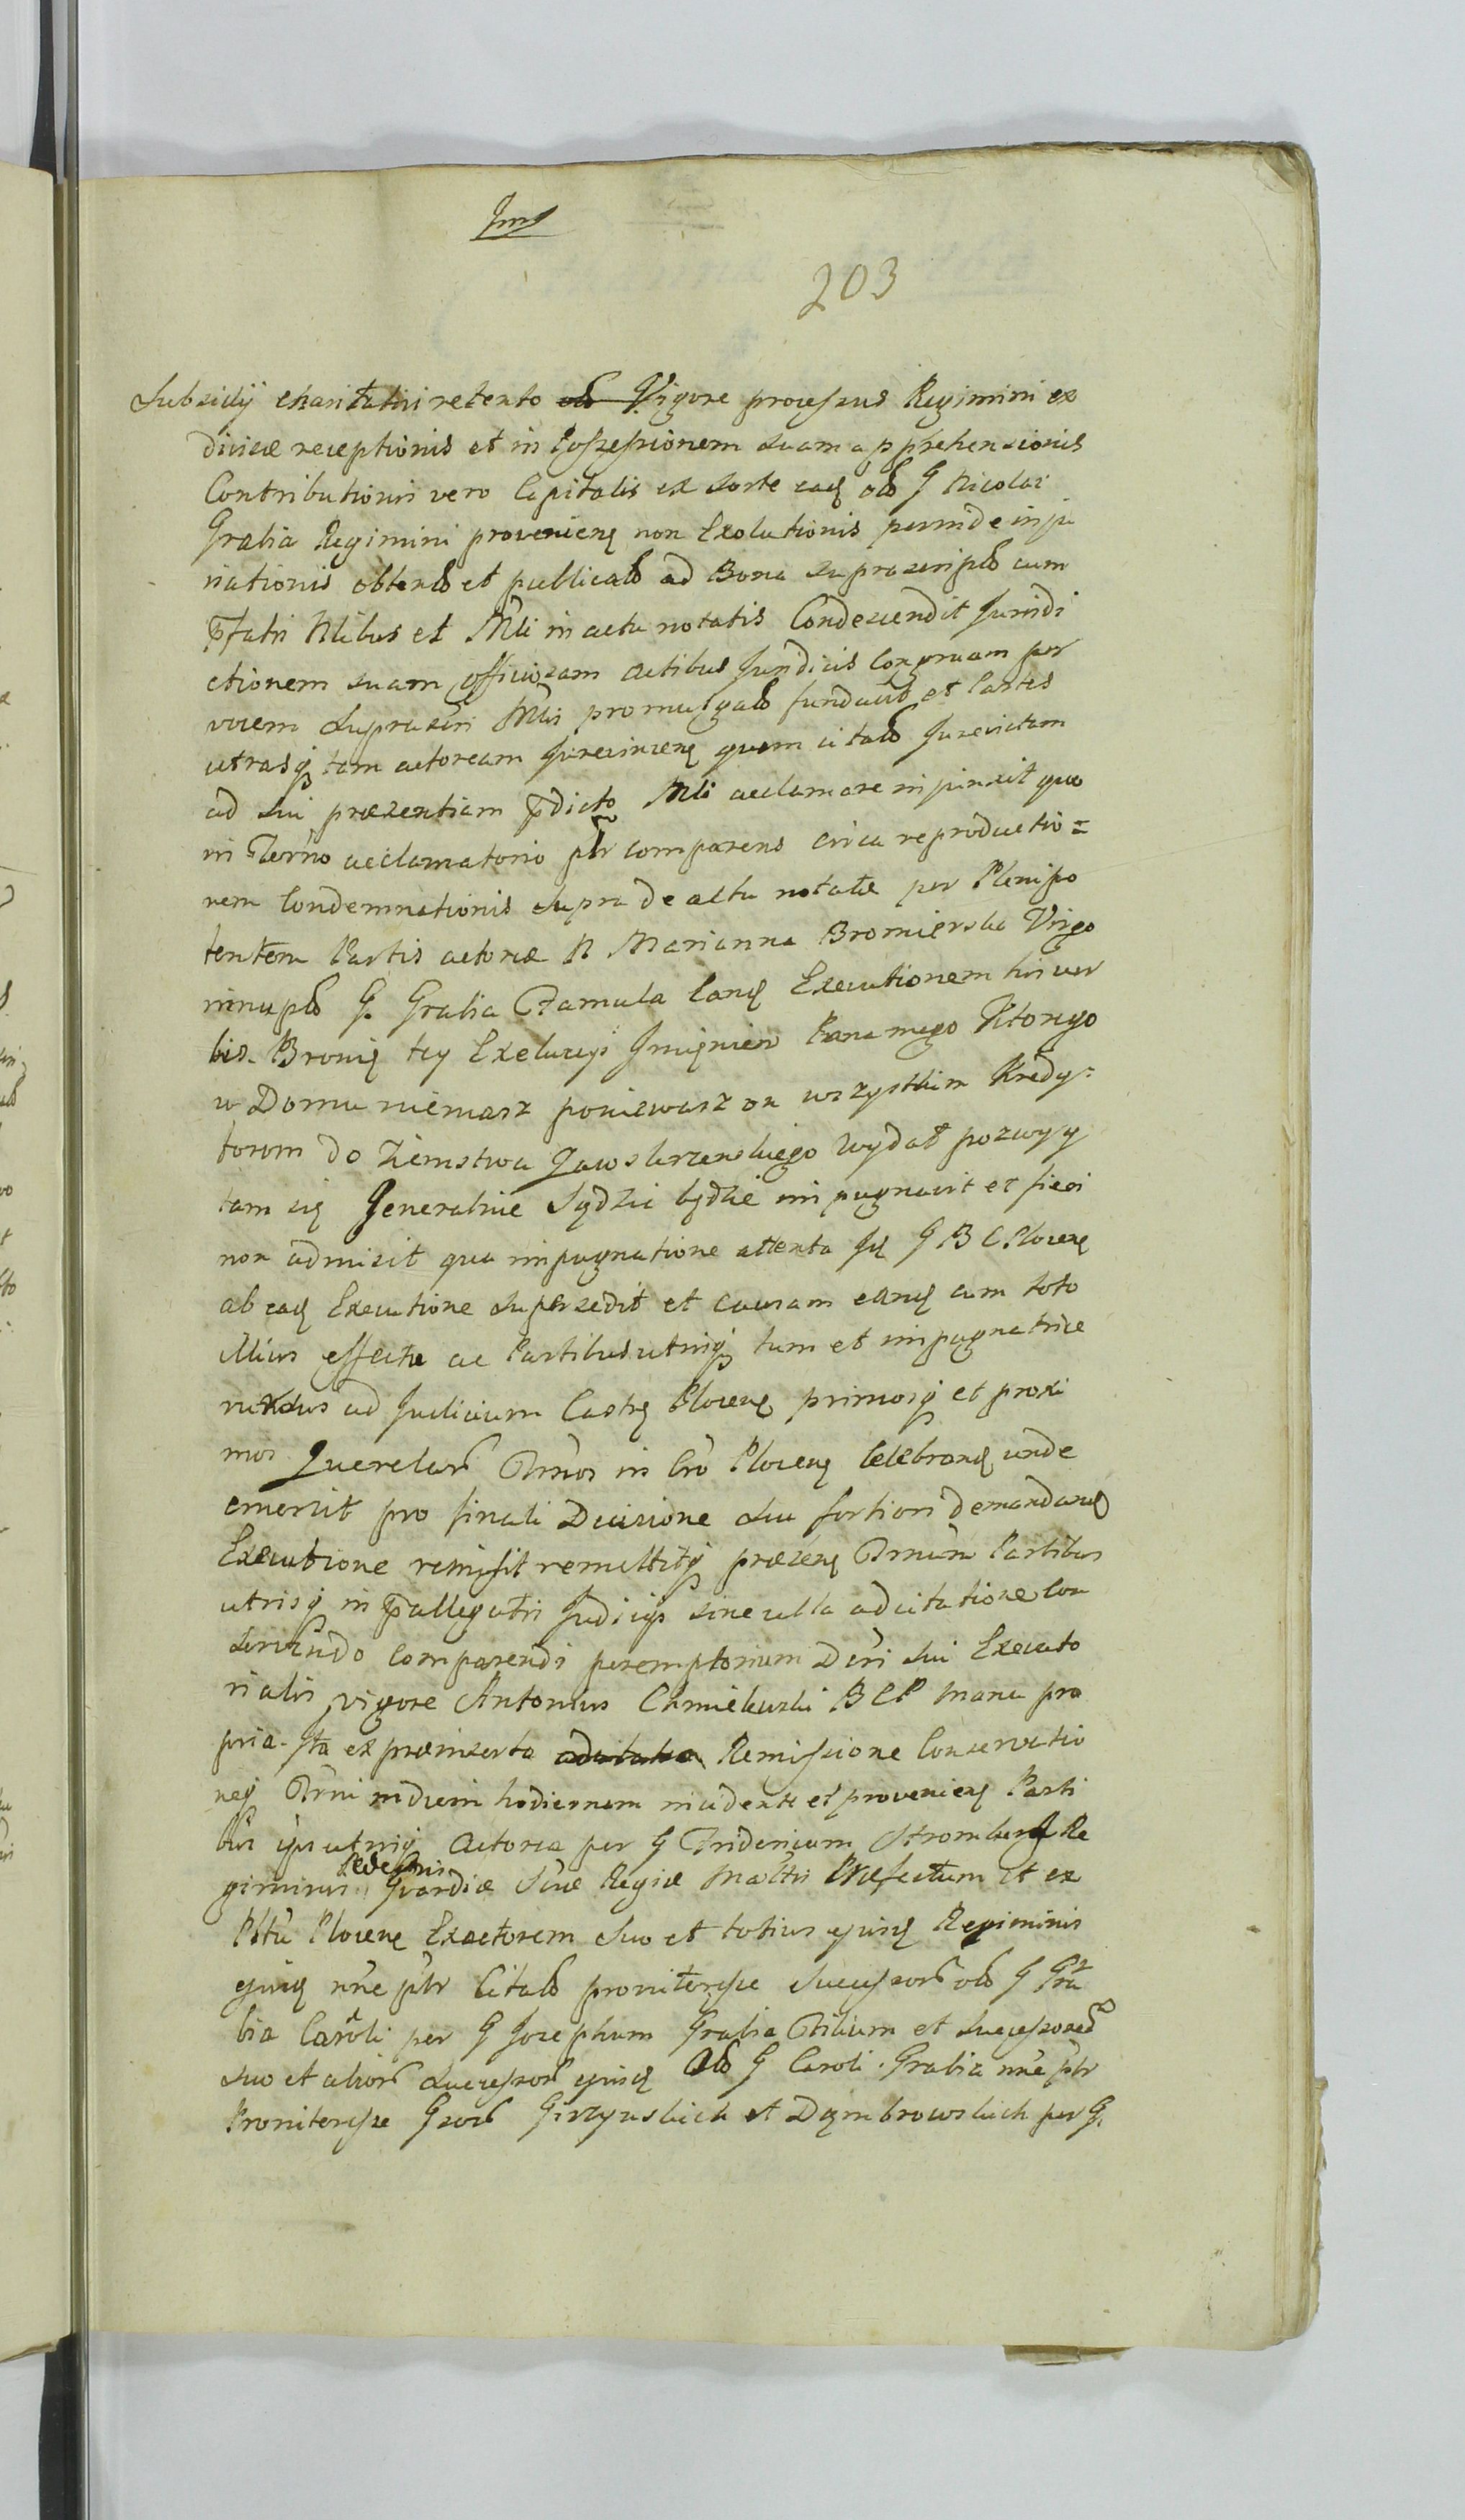 203
Subsidij charitativi retento Vigore processus Regimini ex
divisæ receptionis et in Possessionem suam apprehensionis
Contributionis vero Capitalis ex sorte eadę olō G Nicolai
Grabia Regimini provenienę non Exolutionis perinde inju
riationis obtentō et publicatō ad Bona supra scriptō cum
p̄fatis Nlibus et Mli in actu notatis Condescendit Juridi
ctionem suam officiosam actibus Juridicis Congruam per
vocem supra scri Mlis promulgatō fundavit et Partes
utrasq tam actoream Jurevincenę quam citatō Jurevictam
ad sui præsentiam p̄dicto Mli acclamare injunxit quo
in Terno acclamatorio ptr comparens circa reproductio=
nem Condemnationis supra de actu notatæ per Plenipo
tentem Partis actoreæ N Marianna Bromierska Virgo
innuptō G. Grabia Famula eandę Executionem his ver
bis. Bronię tey Exekucyi Jmięniem Pana mego Ktorego
w Domu niemasz poniewasz on wszystkim Kredy=
torom do Ziemstwa Zawskrzenskiego wydał pozwy y
tam się Generalnie sądzić będzie impugnavit et fieri
non admisit qua impugnatione attenta Jdę G B C Plocenę
ab eadę Executione supersedit et causam eandę cum toto
illius effectu ac Partibus utrisq tum et impugnatrice
rursus ad Judicium Castrę Plocenę primosq et proxi
mos Querelarō Trnos in Cro Plocenę celebrandę unde
emersit pro finali Decisione seu fortiori demandandę
Executione remisit remittitq præsenę Trnum Partibus
utrisq in p̄allegatis Judicijs sine ulla adcitatione con
servando comparendi peremptorium Dcri sui Executo
rialis vigore Antonius Chmielewski B C P manu pro
pria. Ita ex præinserta Remissione Conservatio
neq Trni indiem hodiernam incidente et provenienę Parti
bus ips utrisq Actorea per G Fridericum Stromberg Re
giminis pedestris Gvardiæ Sacræ Regiæ Mattis Præfectum et ex
Pltu Plocenę Exactorem suo et totius ejusdę Regiminis
ejusdę nne ptr Citatō pronitersse Successorō olō G Gra
bia Caroli per G Josephum Grabia Filium et Successorem
suo et aliorō Successorō ejusdę Olō G Caroli Grabia nne ptr
Pronitersse Gsorō Girzynskich et Dąmbrowskich per G.